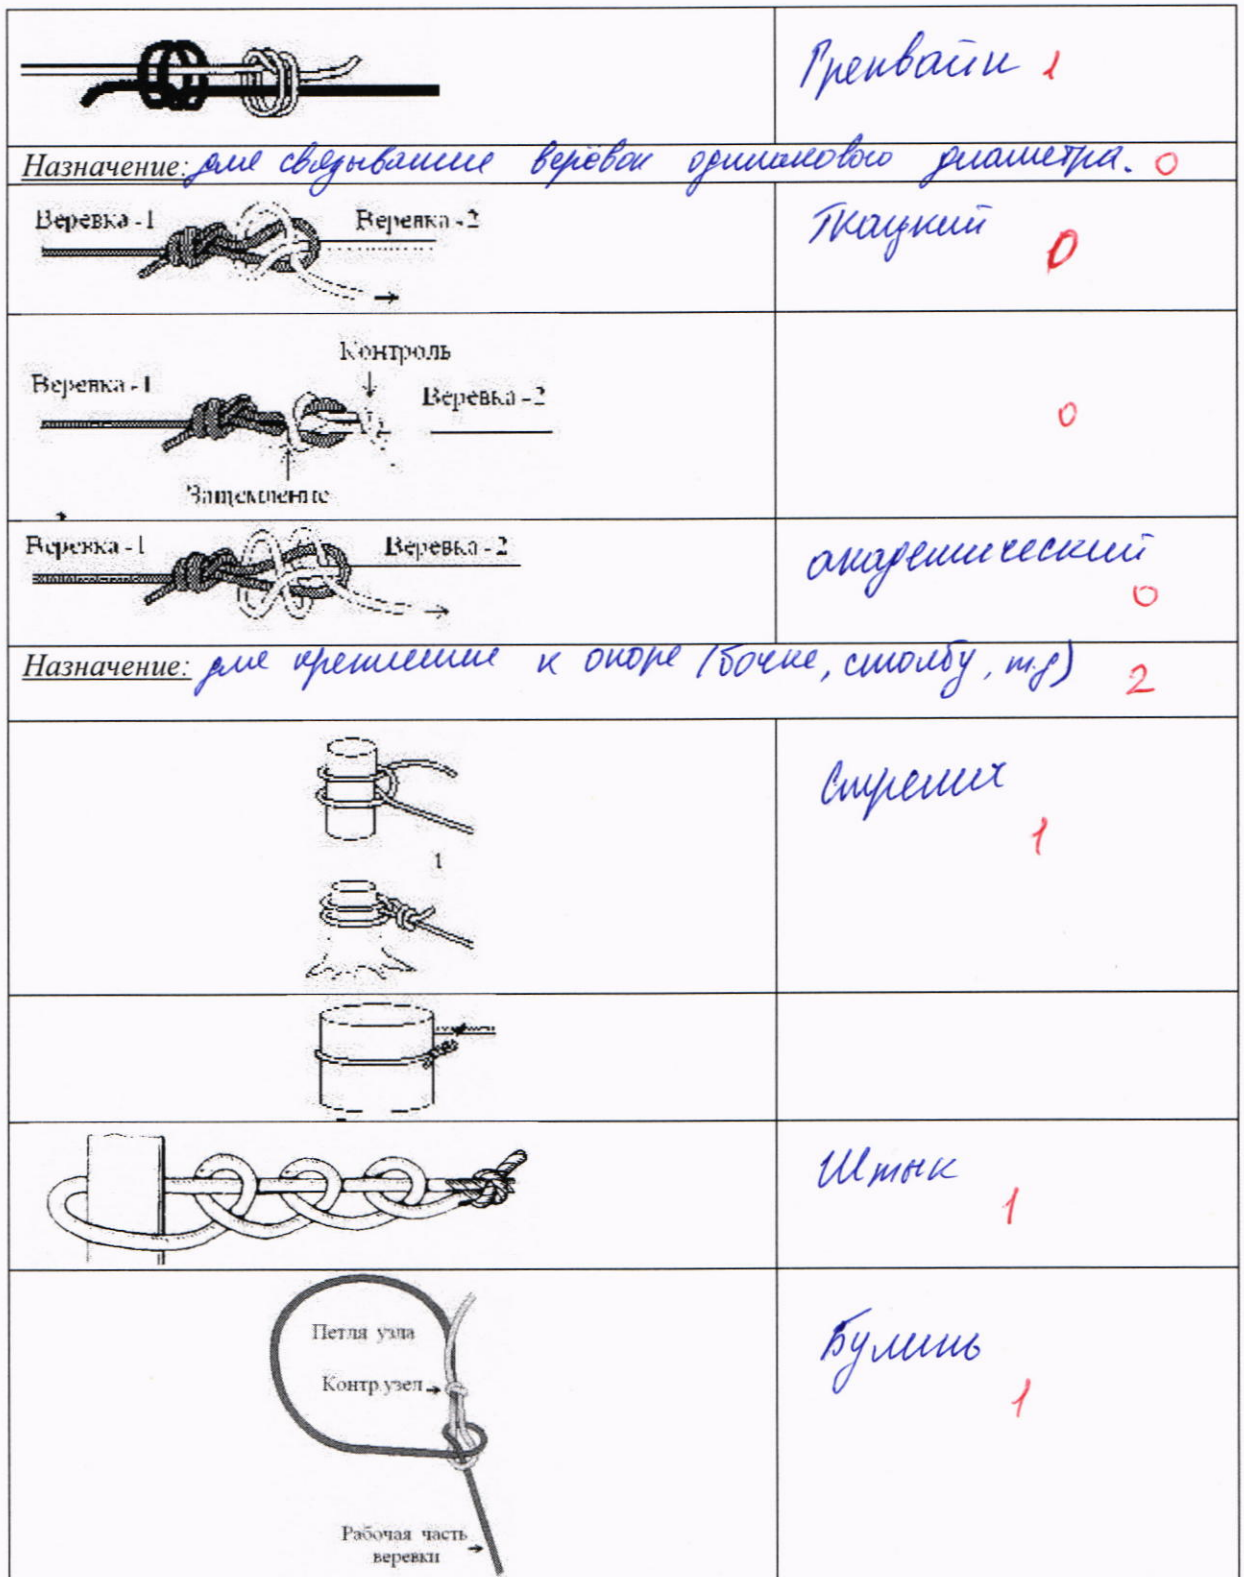 Гренвайн 1
Назначение: для связывание верёвок одинакового диаметра. 0
Веревка -1 Веревка -2
Ткацкий 0
Контроль
Веревка -1
Веревка -2
0
Защемление
Веревка -1 Веревка - 2
академический
0
Назначение: для крепление к опоре (бочке, столбу, т.д) 2
Стремих
1
1
Штык
1
Петля узла
Контр.узел
Булинь
1
Рабочая часть
веревки